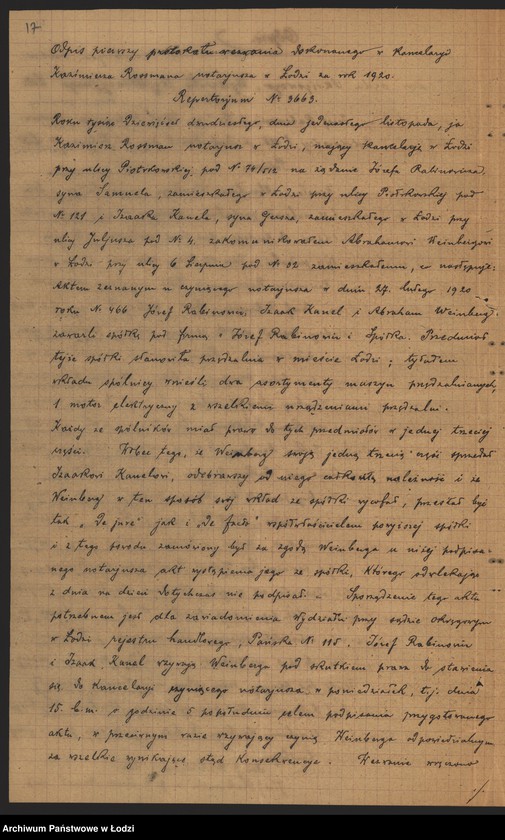 17
Odpis pierwszy protokołu wezwania dokonanego w kancelarji
Kazimierza Rossmana notarjusza w Łodzi za rok 1920.
Repertorjum № 3663.
Roku tysiąc Dziewięćset dwudziestego, dnia jedenastego listopada, ja
Kazimierz Rossman notarjusz w Łodzi, mający kancelarję w Łodzi
przy ulicy Piotrkowskiej, pod № na żądanie Józefa Rabinowicza,
syna Samuela, zamieszkałego w Łodzi przy ulicy Piotrkowskiej pod
№ 121 i Izaaka Kanela, syna Gersza, zamieszkałego w Łodzi przy
ulicy Juljusza pod № 4, zakomunikowałem Abrahamowi Weinbergowi
w Łodzi przy ulicy 6 Sierpnia pod № 32 zamieszkałemu, co następuje:
Aktem zeznanym u czyniącego notarjusza w dniu 27 lutego 1920
roku № 466 Józef Rabinowicz, Izaak Kanel i Abraham Weinberg,
zawarli spółkę pod firmą: Józef Rabinowicz i Spółka. Przedmiot
tejże spółki stanowiła przędzalnia w mieście Łodzi; tytułem
wkładu spólnicy wnieśli dwa asortymenty maszyn przędzalnianych,
1 motor elektryczny z wszelkiemi urządzeniami przędzalni.
Każdy ze spólników miał prawo do tych przedmiotów w jednej trzeciej
części. Wobec tego, że Weinberg swoją jedną trzecią część sprzedał
Izaakowi Kanelowi, odebrawszy od niego całkowitą należność i że
Weinberg w ten sposób swój wkład ze spółki wycofał, przestał być
tak „de jure" jak i „de facto" współwłaścicielem powyższej spółki
i z tego powodu zamówiony był za zgodą Weinberga u niżej podpisa-
nego notarjusza akt wystąpienia jego ze spółki, którego odwlekając
z dnia na dzień dotychczas nie podpisał. - Sporządzenie tego aktu
potrzebnem jest dla zawiadomienia Wydziału przy sądzie okręgowym
w Łodzi rejestru handlowego, Pańska № 115. Józef Rabinowicz
i Izaak Kanel wzywają Weinberga pod skutkiem prawa do stawienia
się do kancelarji czyniącego notarjusza w poniedziałek, t.j. dnia
15 b.m. o godzinie 5 popołudniu celem podpisania przygotowanego
aktu, w przeciwnym razie wzywający czynią Weinberga odpowiedzialnym
za wszelkie wynikające stąd konsekwencje. Wezwanie wręczono
./.
Archiwum Państwowe w Łodzi